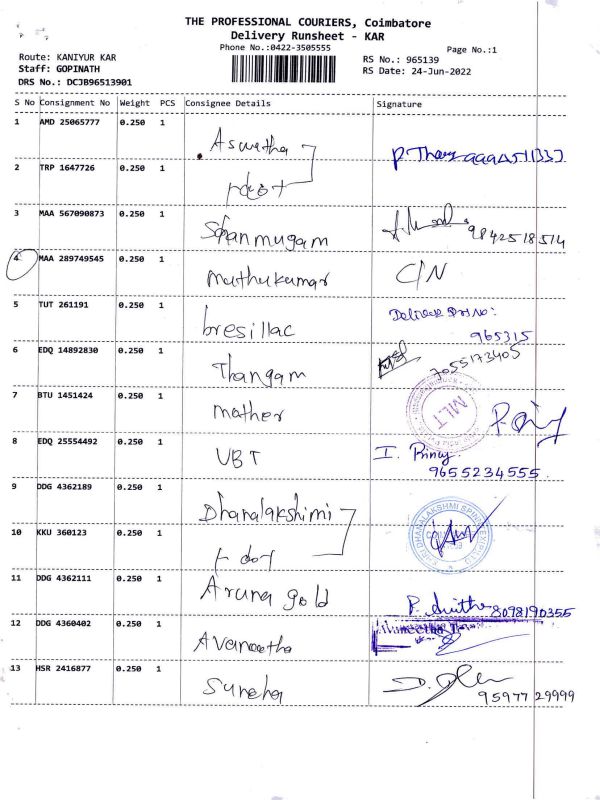 THE PROFESSIONAL COURIERS, Coimbatore
Delivery Runsheet - KAR
Phone No.:0422-3505555
Page No.:1
Route: KANIYUR KAR
RS No.: 965139
Staff: GOPINATH
RS Date: 24-Jun-2022
DRS No.: DCJB96513901
S No Consignment No Weight PCS Consignee Details Signature
1 AMD 25065777 0.250 1 Aswatha
2 TRP 1647726 0.250 1
3 MAA 567090873 0.250 1 Shanmugam 9842518514
4 MAA 289749545 0.250 1 Muthukumar C/N
5 TUT 261191 0.250 1 bresillac 965315
6 EDQ 14892830 0.250 1 Thangam 7055173405
7 BTU 1451424 0.250 1 mather MLT
8 EDQ 25554492 0.250 1 VBT I. Priney 9655234555
9 DDG 4362189 0.250 1 Dhanalakshimi
10 KKU 360123 0.250 1
11 DDG 4362111 0.250 1 Aruna gold 8098190355
12 DDG 4360402 0.250 1 Avaneetha
13 HSR 2416877 0.250 1 Sureha 95977 29999